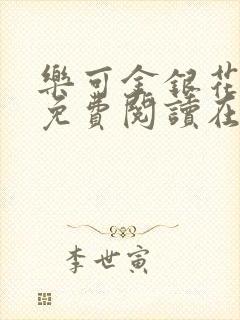 樂可金銀花
免費閱讀在
李世寅